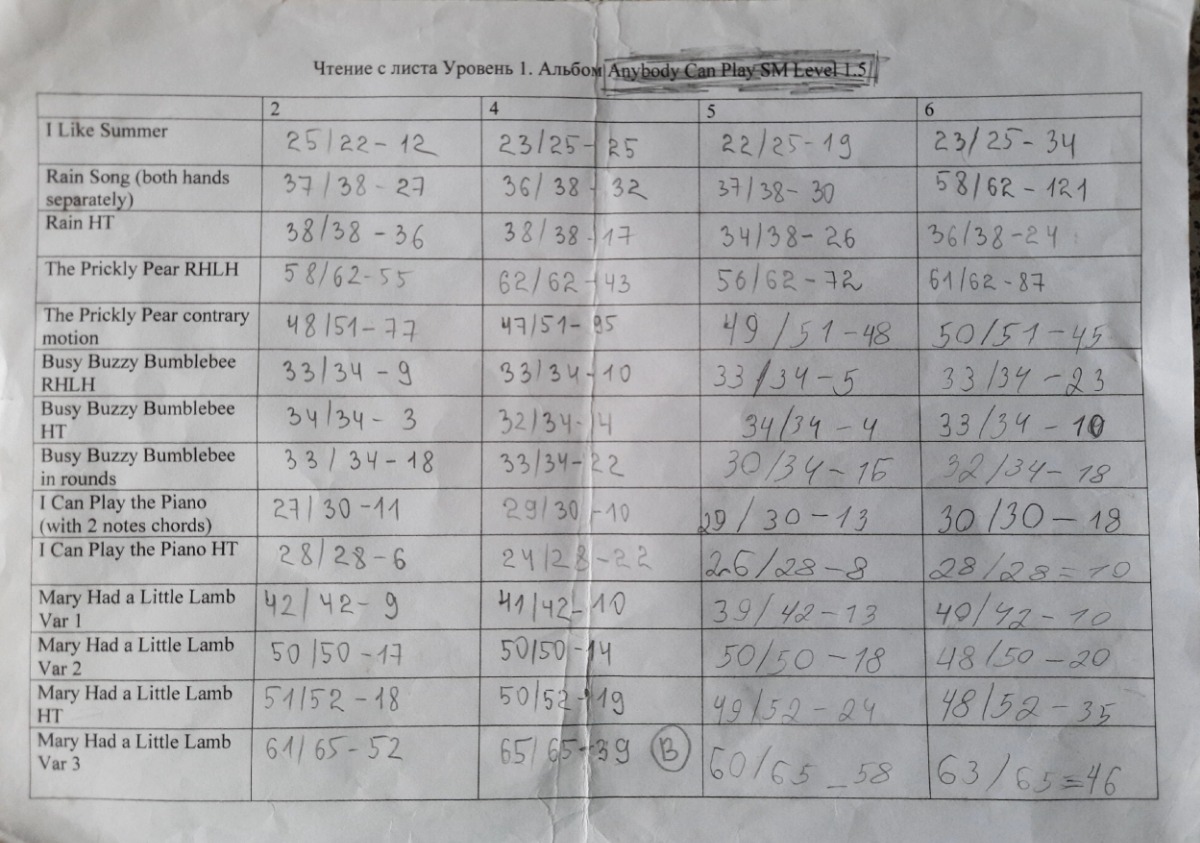 Чтение с листа Уровень 1. Альбом Anybody Can Play SM Level 1.5
2 4 5 6
I Like Summer 25/22-12 23/25-25 22/25-19 23/25-34
Rain Song (both hands separately) 37/38-27 36/38-32 37/38-30 58/62-121
Rain HT 38/38-36 38/38-17 34/38-26 36/38-24
The Prickly Pear RHLH 58/62-55 62/62-43 56/62-72 61/62-87
The Prickly Pear contrary motion 48/51-77 47/51-95 49/51-48 50/51-45
Busy Buzzy Bumblebee RHLH 33/34-9 33/34-10 33/34-5 33/34-23
Busy Buzzy Bumblebee HT 34/34-3 32/34-4 34/34-4 33/34-10
Busy Buzzy Bumblebee in rounds 33/34-18 33/34-22 30/34-16 32/34-18
I Can Play the Piano (with 2 notes chords) 27/30-11 29/30-10 29/30-13 30/30-18
I Can Play the Piano HT 28/28-6 24/28-22 26/28-8 28/28=10
Mary Had a Little Lamb Var 1 42/42-9 41/42-10 39/42-13 40/42-10
Mary Had a Little Lamb Var 2 50/50-17 50/50-14 50/50-18 48/50-20
Mary Had a Little Lamb HT 51/52-18 50/52-19 49/52-24 48/52-35
Mary Had a Little Lamb Var 3 61/65-52 65/65-39 B 60/65-58 63/65=46